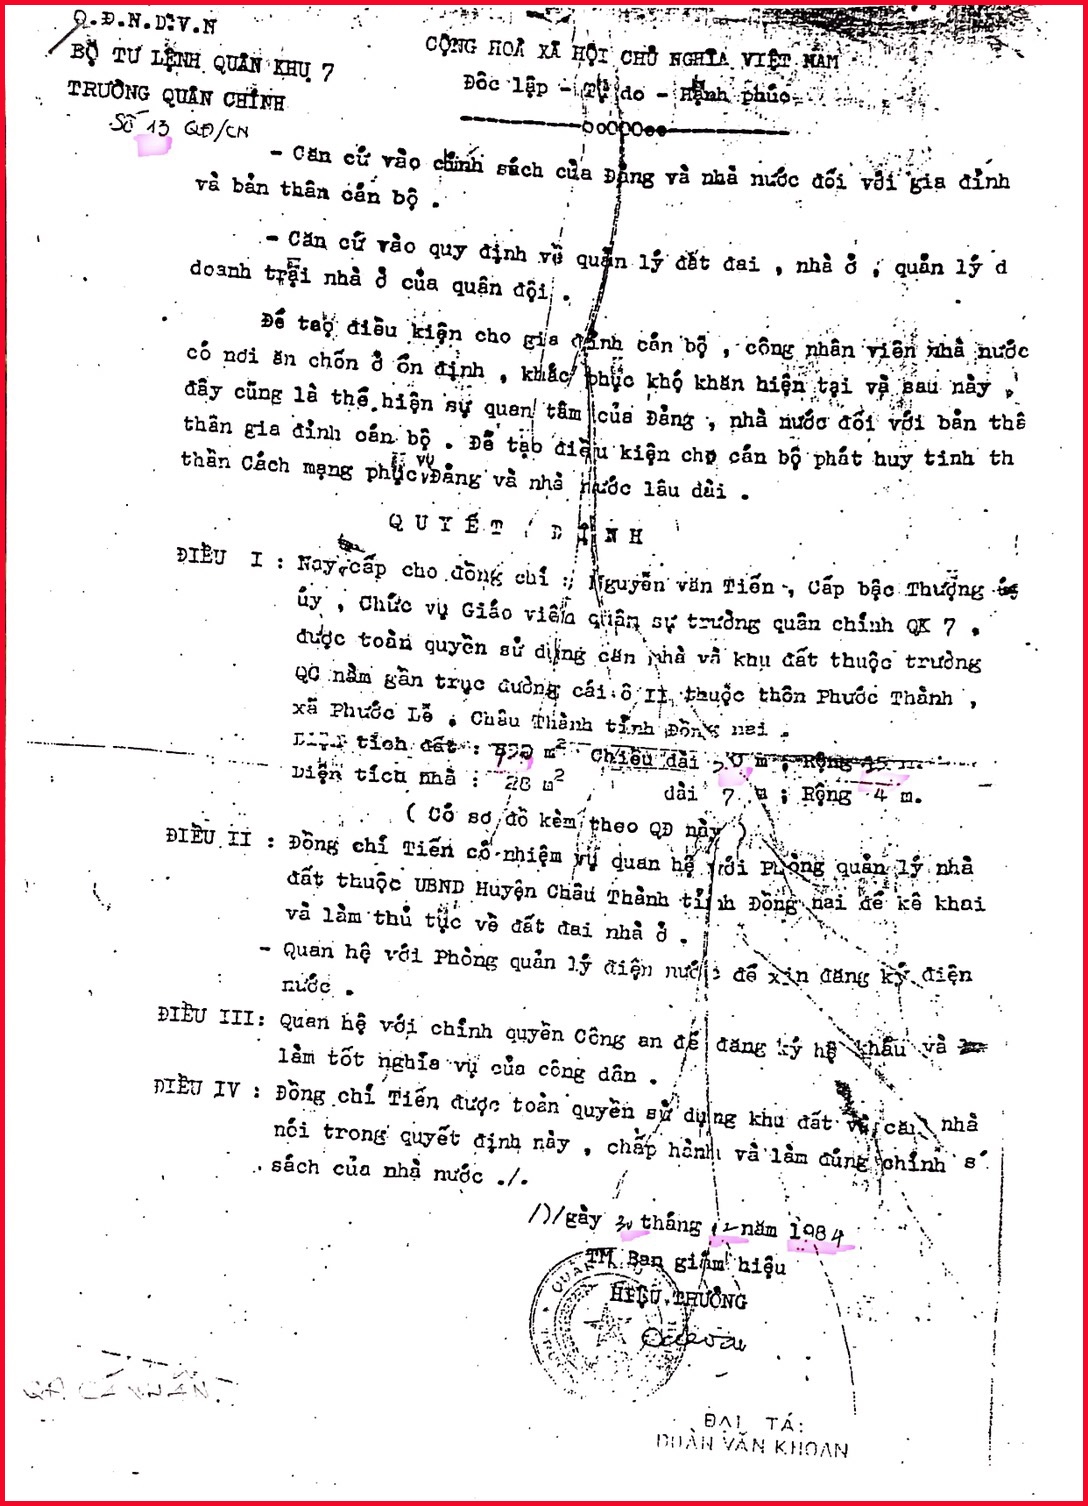 Q.Đ.N.D.V.N
BỘ TƯ LỆNH QUÂN KHU 7
TRƯỜNG QUÂN CHÍNH
Số 13 QĐ/CN
CỘNG HOÀ XÃ HỘI CHỦ NGHĨA VIỆT NAM
Đôc lập - Tự do - Hạnh phúc
- Căn cứ vào chính sách của Đảng và nhà nước đối với gia đình
và bản thân cán bộ .
- Căn cứ vào quy định về quản lý đất đai , nhà ở , quản lý d
doanh trại nhà ở của quân đội .
Để tạo điều kiện cho gia đình cán bộ , công nhân viên nhà nước
có nơi ăn chốn ở ổn định , khắc phục khó khăn hiện tại và sau này ,
đây cũng là thể hiện sự quan tâm của Đảng , nhà nước đối với bản thê
thân gia đình cán bộ . Để tạo điều kiện cho cán bộ phát huy tinh th
thần Cách mạng phục vụ Đảng và nhà nước lâu dài .
QUYẾT ĐỊNH
ĐIỀU I : Nay cấp cho đồng chí : Nguyễn văn Tiến , Cấp bậc Thượng
úy , Chức vụ Giáo viên quân sự trường quân chính QK 7 .
được toàn quyền sử dụng căn nhà và khu đất thuộc trường
QC nằm gần trục đường cái ô II thuộc thôn Phước Thành ,
xã Phước Lễ . Châu Thành tỉnh Đồng nai .
Diện tích đất : m² Chiều dài m ; Rộng 15 m
Diện tích nhà : 28 m² dài 7 m ; Rộng 4 m.
( Có sơ đồ kèm theo QĐ này )
ĐIỀU II : Đồng chí Tiến có nhiệm vụ quan hệ với Phòng quản lý nhà
đất thuộc UBND Huyện Châu Thành tỉnh Đồng nai để kê khai
và làm thủ tục về đất đai nhà ở .
- Quan hệ với Phòng quản lý điện nước để xin đăng ký điện
nước .
ĐIỀU III: Quan hệ với chính quyền Công an để đăng ký hộ khẩu và
làm tốt nghĩa vụ của công dân .
ĐIỀU IV : Đồng chí Tiến được toàn quyền sử dụng khu đất và căn nhà
nói trong quyết định này , chấp hành và làm đúng chính s
sách của nhà nước ./.
Ngày 30 tháng 12 năm 1984
TM Ban giám hiệu
HIỆU TRƯỞNG
ĐẠI TÁ:
ĐOÀN VĂN KHOAN